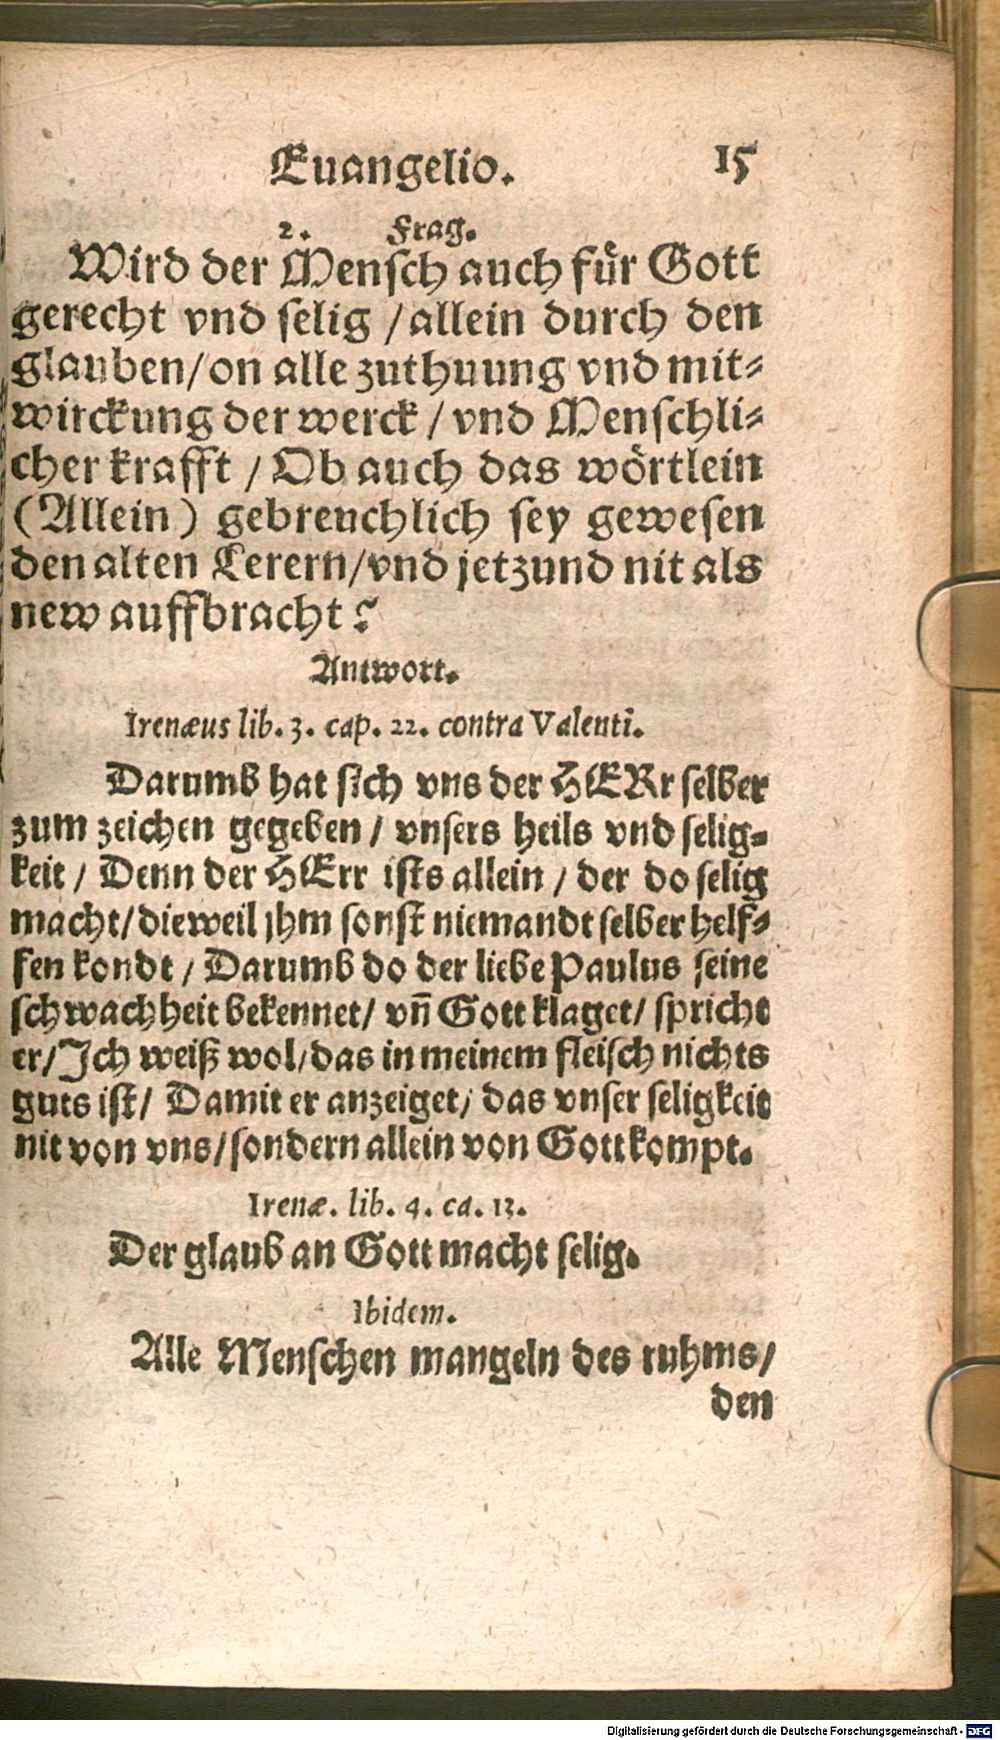 Euangelio. 15
2. Frag.
Wird der Mensch auch für Gott
gerecht vnd selig / allein durch den
glauben / on alle zuthuung vnd mit-
wirckung der werck / vnd Menschli-
cher krafft / Ob auch das wörtlein
(Allein) gebreuchlich sey gewesen
den alten Lerern / vnd jetzund nit als
new auffbracht?
Antwort.
Irenæus lib. 3. cap. 22. contra Valenti.
Darumb hat sich vns der HERr selber
zum zeichen gegeben / vnsers heils vnd selig-
keit / Denn der HErr ists allein / der do selig
macht / dieweil jhm sonst niemandt selber helf-
fen kondt / Darumb do der liebe Paulus seine
schwachheit bekennet / vñ Gott klaget / spricht
er / Ich weiß wol / das in meinem fleisch nichts
guts ist / Damit er anzeiget / das vnser seligkeit
nit von vns / sondern allein von Gott kompt.
Irenæ. lib. 4. ca. 13.
Der glaub an Gott macht selig.
Ibidem.
Alle Menschen mangeln des ruhms /
den
Digitalisierung gefördert durch die Deutsche Forschungsgemeinschaft - DFG